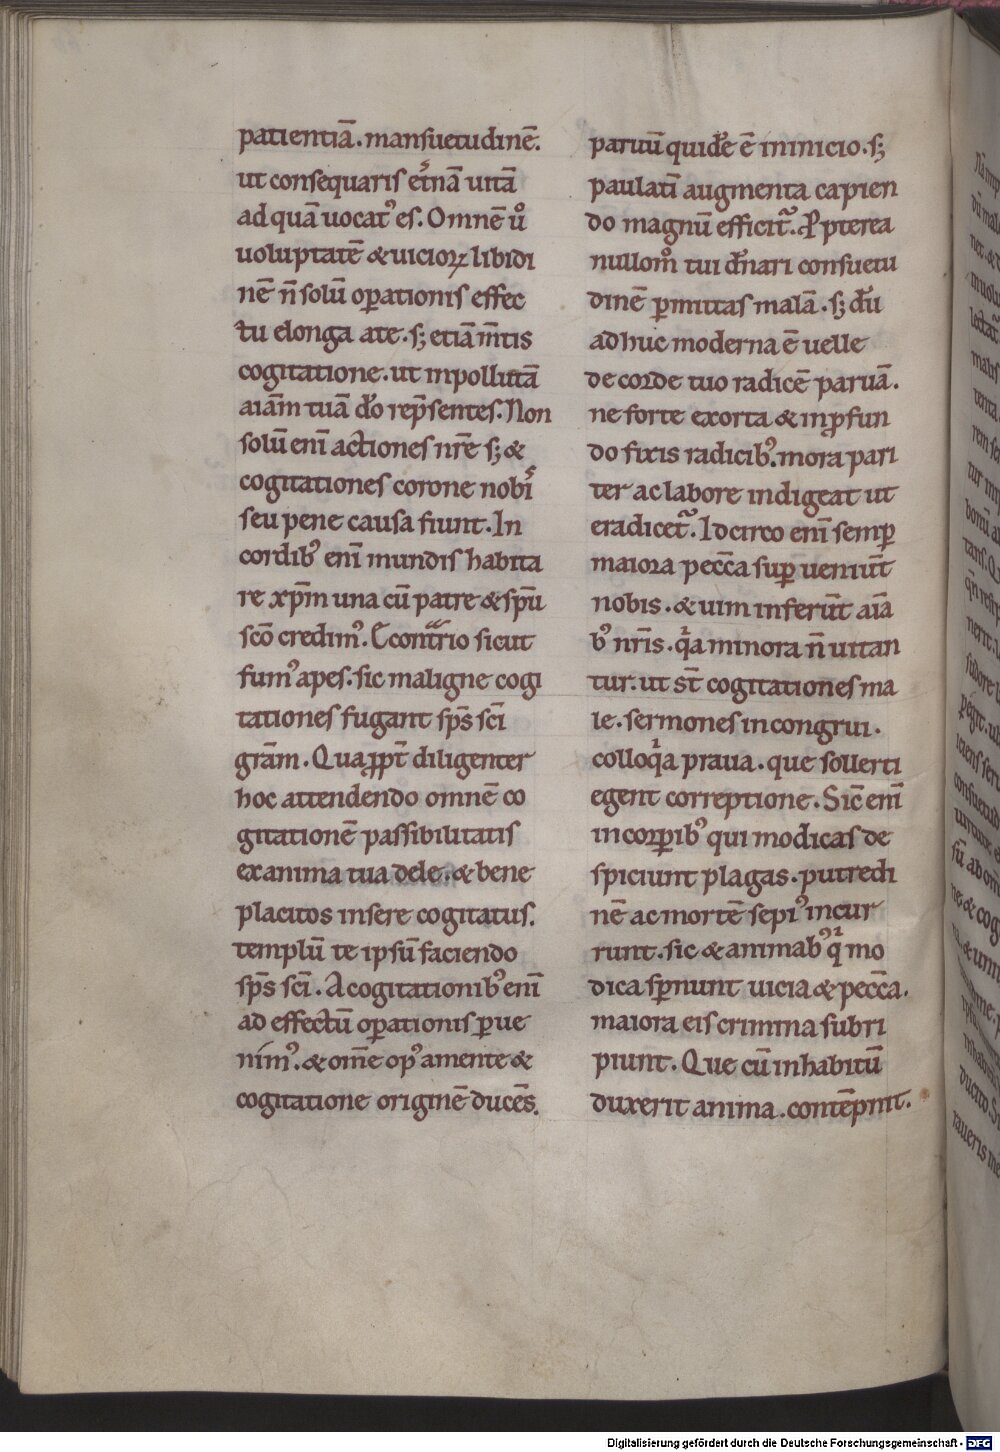 patientiā. mansuetudinē.
ut consequaris et̾nā uitā
ad quā uocatꝰ es. Omnē ů
uoluptatē & uicioꝝ libidi
nē n̄ solū oꝑationis effec
tu elonga a te. sꝫ etiā m̄tis
cogitatione. ut inpollutā
aiām tuā do̅ rep̄sentes. Non
solū enī actiones nr̄e sꝫ &
cogitationes corone nob̾ı
seu pene causa fiunt. In
cordibꝰ enī mundis habita
re xp̄m una cū patre & spū
scō credimꝰ. E contrͣrio sicut
fumꝰ apes. sic maligne cogi
tationes fugant sps̄ scī
grām. Quaꝓpt̄ diligenter
hoc attendendo omnē co
gitationē passibilitatis
ex anima tua dele. & bene
placitos insere cogitatus.
templū te ipsū faciendo
sps̄ scī. A cogitationibꝰ enī
ad effectū oꝑationis ꝑue
nimꝰ. & om̄e opꝰ a mente &
cogitatione originē ducēs.
paruū quidē ē in inicio. sꝫ
paulatī augmenta capien
do magnū efficit᷑. Ꝓpterea
nullom̊ tui dn̄ari consuetu
dinē ꝑmittas malā. sꝫ dū
adhuc moderna ē uelle
de corde tuo radicē paruā.
ne forte exorta & in ꝓfun
do fixis radicibꝰ. mora pari
ter ac labore indigeat ut
eradicet᷑. Idcirco enī semꝑ
maiora pecc̄a suꝑueniūt
nobis. & uim inferūt aīa
bꝰ nr̄is. qͥa minora n̄ uitan
tur. ut st̄ cogitationes ma
le. sermones incongrui.
colloqͥa praua. que sollerti
egent correptione. Sic̄ enī
in corꝑibꝰ qui modicas de
spiciunt plagas. putredi
nē ac mortē sepiꝰ incur
runt. sic & animabꝰ qͥ mo
dica sꝑnunt uicia & pecc̄a.
maiora eis crimina subri
piunt. Que cū in habitū
duxerit anima. contēpnit.
Digitalisierung gefördert durch die Deutsche Forschungsgemeinschaft - DFG